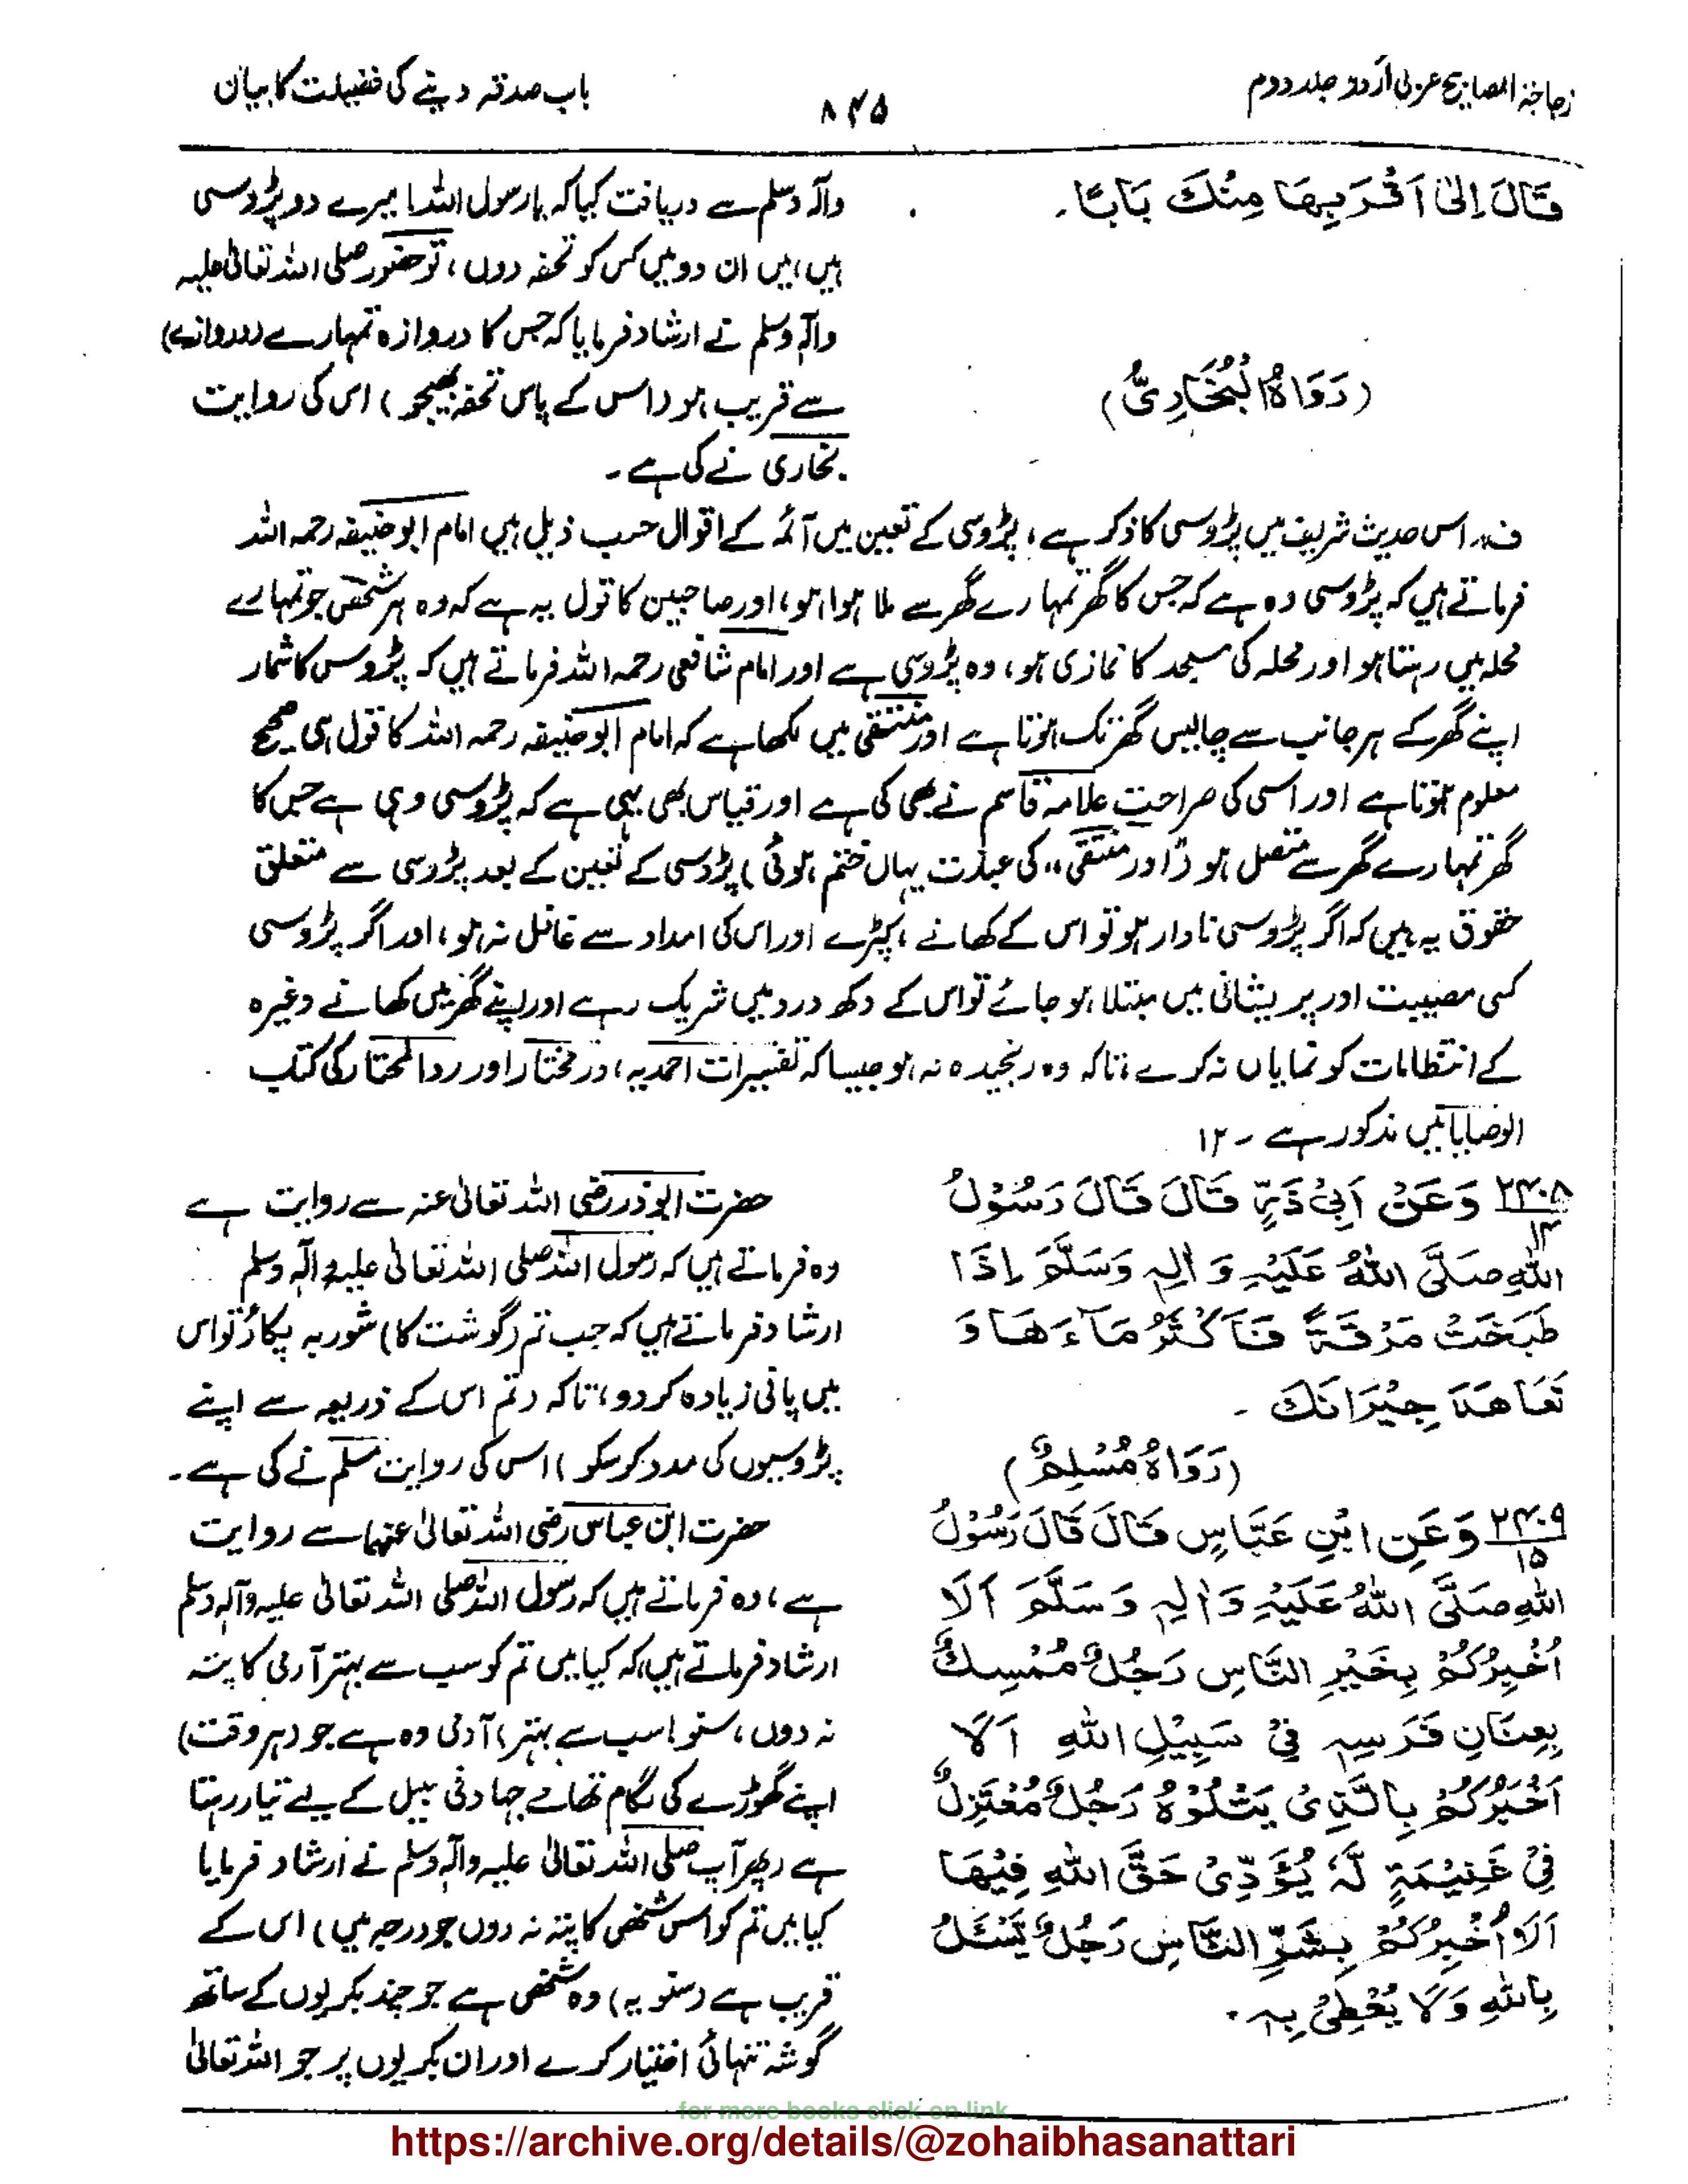 زجاجۃ المصابیح عربی اُردو جلد دوم
۸۴۵
باب صدقہ دینے کی فضیلت کا بیان
قَالَ اِلٰی اَقْرَبِهَا مِنْكَ بَابًا۔
(رَوَاهُ الْبُخَارِیُّ)
وآلہ وسلم سے دریافت کیا کہ یا رسول اللہ! میرے دو پڑوسی
ہیں، میں ان دو میں کس کو تحفہ دوں، تو حضور صلی اللہ تعالیٰ علیہ
وآلہ وسلم نے ارشاد فرمایا کہ جس کا دروازہ تمہارے (دروازے)
سے قریب ہو (اس کے پاس تحفہ بھیجو) اس کی روایت
بخاری نے کی ہے۔
ف: اس حدیث شریف میں پڑوسی کا ذکر ہے، پڑوسی کے تعین میں آئمہ کے اقوال حسب ذیل ہیں امام ابو حنیفہ رحمہ اللہ
فرماتے ہیں کہ پڑوسی وہ ہے کہ جس کا گھر تمہارے گھر سے ملا ہوا ہو، اور صاحبین کا قول یہ ہے کہ وہ ہر شخص جو تمہارے
محلہ میں رہتا ہو اور محلہ کی مسجد کا نمازی ہو، وہ پڑوسی ہے اور امام شافعی رحمہ اللہ فرماتے ہیں کہ پڑوس کا شمار
اپنے گھر کے ہر جانب سے چالیس گھر تک ہوتا ہے اور منتقٰی میں لکھا ہے کہ امام ابو حنیفہ رحمہ اللہ کا قول ہی صحیح
معلوم ہوتا ہے اور اسی کی صراحت علامہ قاسم نے بھی کی ہے اور قیاس بھی یہی ہے کہ پڑوسی وہی ہے جس کا
گھر تمہارے گھر سے متصل ہو (اور منتقٰی" کی عبارت یہاں ختم ہوئی) پڑوسی کے تعین کے بعد پڑوسی سے متعلق
حقوق یہ ہیں کہ اگر پڑوسی نادار ہو تو اس کے کھانے، کپڑے اور اس کی امداد سے غافل نہ ہو، اور اگر پڑوسی
کسی مصیبت اور پریشانی میں مبتلا ہو جائے تو اس کے دکھ درد میں شریک رہے اور اپنے گھر میں کھانے وغیرہ
کے انتظامات کو نمایاں نہ کرے تاکہ وہ رنجیدہ نہ ہو جیسا کہ تفسیرات احمدیہ، درمختار اور ردالمحتار کی کتاب
الوصایا میں مذکور ہے ۔ ۱۲
۲۴۰۸/۱۴ وَعَنْ اَبِیْ ذَرٍّ قَالَ قَالَ رَسُوْلُ
اللهِ صَلَّی اللهُ عَلَیْهِ وَاٰلِهٖ وَسَلَّمَ اِذَا
طَبَخْتَ مَرْقَةً فَاَكْثِرْ مَآءَهَا وَ
تَعَاهَدْ جِیْرَانَكَ ۔
(رَوَاهُ مُسْلِمٌ)
حضرت ابوذر رضی اللہ تعالیٰ عنہ سے روایت ہے
وہ فرماتے ہیں کہ رسول اللہ صلی اللہ تعالیٰ علیہ وآلہ وسلم
ارشاد فرماتے ہیں کہ جب تم (گوشت کا) شوربہ پکاؤ تو اس
میں پانی زیادہ کر دو، تاکہ (تم اس کے ذریعہ سے اپنے
پڑوسیوں کی مدد کر سکو) اس کی روایت مسلم نے کی ہے۔
۲۴۰۹/۱۵ وَعَنِ ابْنِ عَبَّاسٍ قَالَ قَالَ رَسُوْلُ
اللهِ صَلَّی اللهُ عَلَیْهِ وَاٰلِهٖ وَسَلَّمَ اَلَا
اُخْبِرُكُمْ بِخَیْرِ النَّاسِ رَجُلٌ مُمْسِكٌ
بِعِنَانِ فَرَسِهٖ فِیْ سَبِیْلِ اللهِ اَلَا
اُخْبِرُكُمْ بِالَّذِیْ یَتْلُوْهُ رَجُلٌ مُعْتَزِلٌ
فِیْ غَنِیْمَةٍ لَّهٗ یُؤَدِّیْ حَقَّ اللهِ فِیْهَا
اَلَا اُخْبِرُكُمْ بِشَرِّ النَّاسِ رَجُلٌ یَّسْئَلُ
بِاللهِ وَلَا یُعْطِیْ بِهٖ۔
حضرت ابن عباس رضی اللہ تعالیٰ عنہما سے روایت
ہے، وہ فرماتے ہیں کہ رسول اللہ صلی اللہ تعالیٰ علیہ وآلہ وسلم
ارشاد فرماتے ہیں، کہ کیا میں تم کو سب سے بہتر آدمی کا پتہ
نہ دوں، سنو! سب سے بہتر، آدمی وہ ہے جو (ہر وقت)
اپنے گھوڑے کی لگام تھامے جہاد فی سبیل کے لیے تیار رہتا
ہے (پھر آپ صلی اللہ تعالیٰ علیہ وآلہ وسلم نے ارشاد فرمایا
کیا میں تم کو اس شخص کا پتہ نہ دوں جو درجہ میں) اس کے
قریب ہے (سنو یہ) وہ شخص ہے جو چند بکریوں کے ساتھ
گوشہ تنہائی اختیار کرے اور ان بکریوں پر جو اللہ تعالیٰ
for more books click on link
https://archive.org/details/@zohaibhasanattari